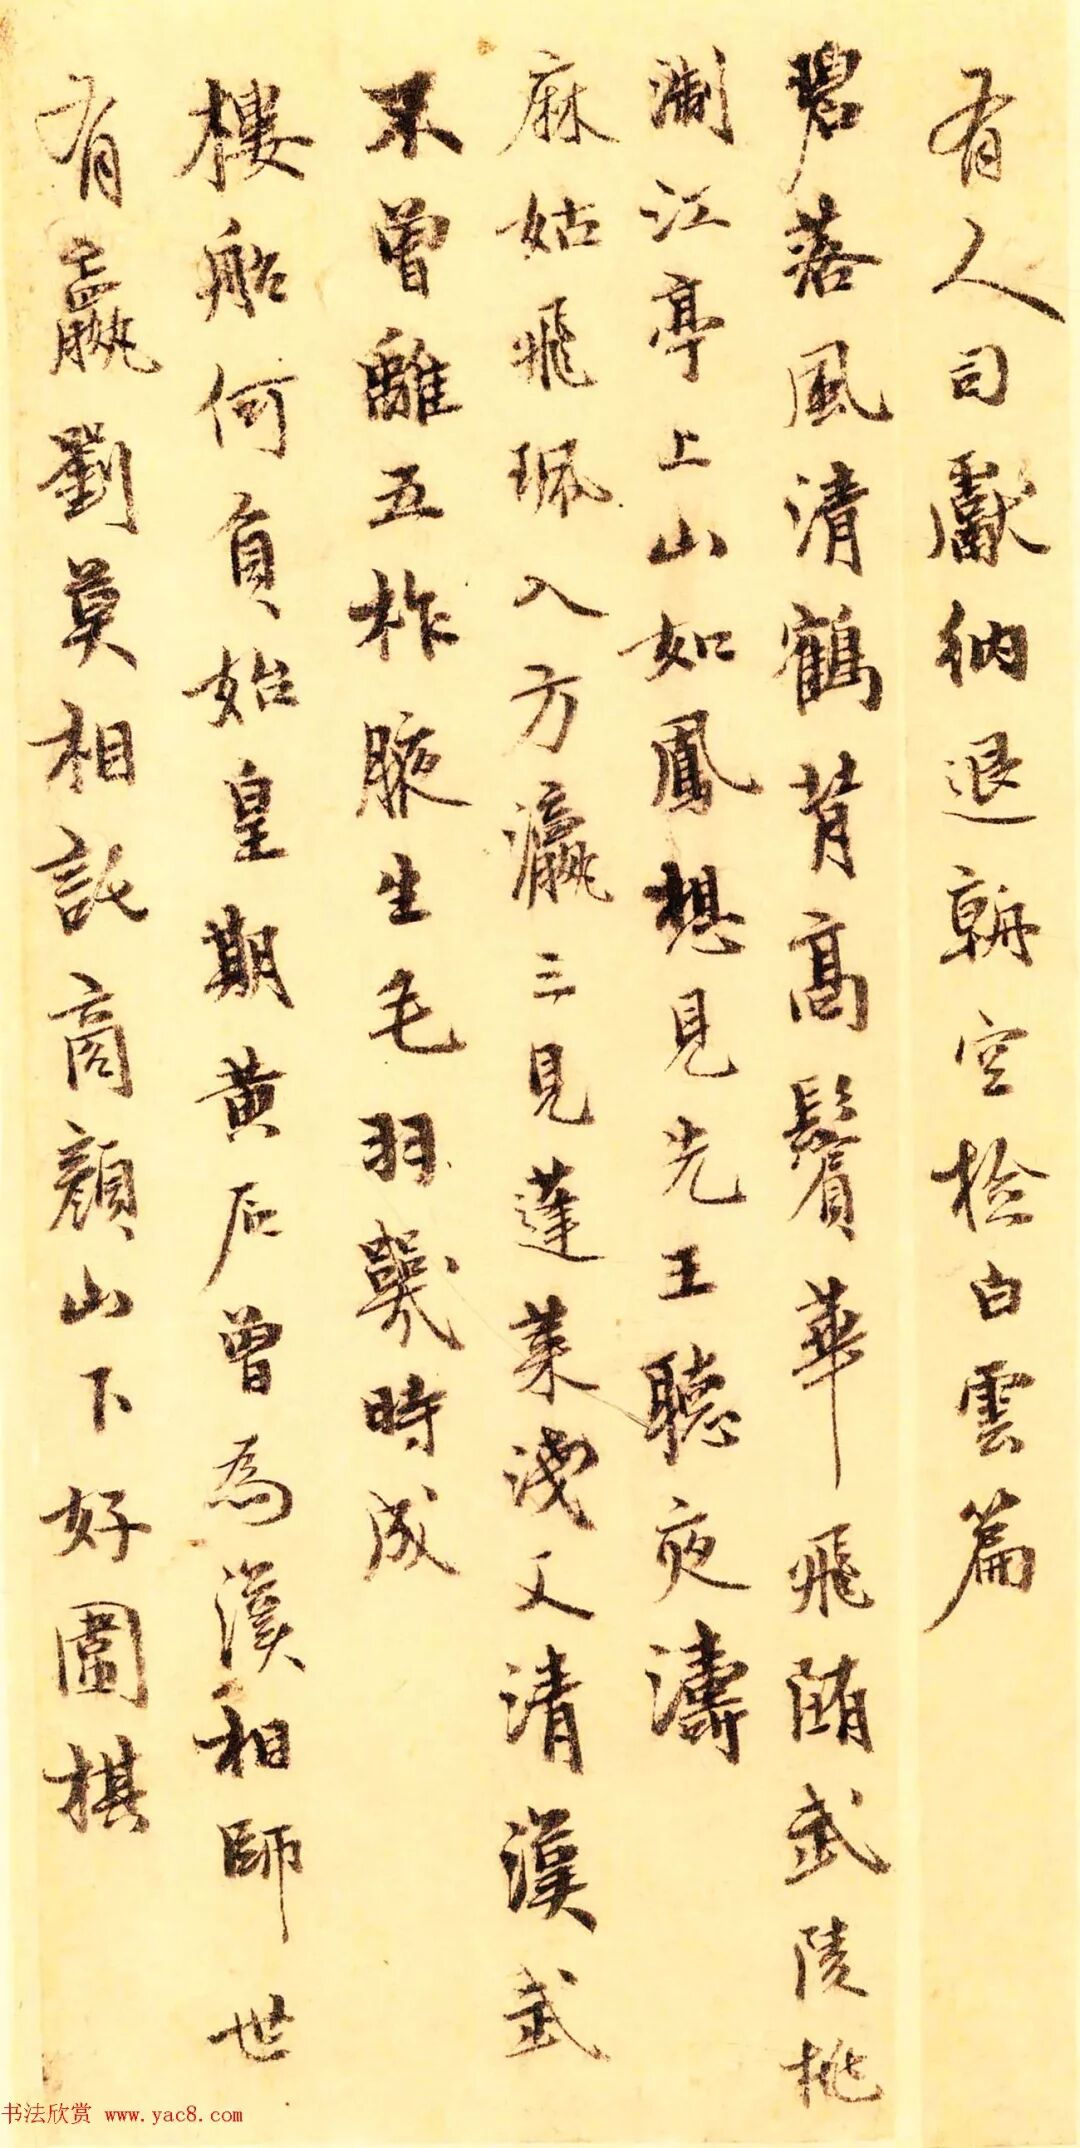 有人司獻納退朝空檢白雲篇
碧落風清鶴背高鬢華飛随武陵桃
淛江亭上山如鳳想見先王聽夜濤
麻姑飛珮入方瀛三見蓬萊淺又清漢武
不曾離五柞腋生毛羽幾時成
樓船何負始皇期黄石曾為漢相師世
有嬴劉莫相託商顏山下好圍棋
书法欣赏 www.yac8.com